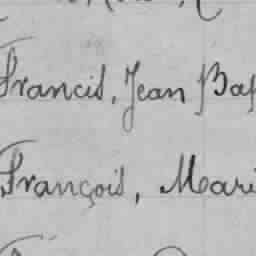 Francis, Jean Bap
François, Mari